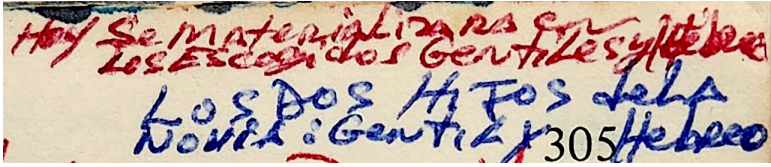 Hoy Se Materializara en
Los Escogidos Gentiles y Hebreo
Los DOS HiJos de la
Novia: Gentil y 305 Hebreo